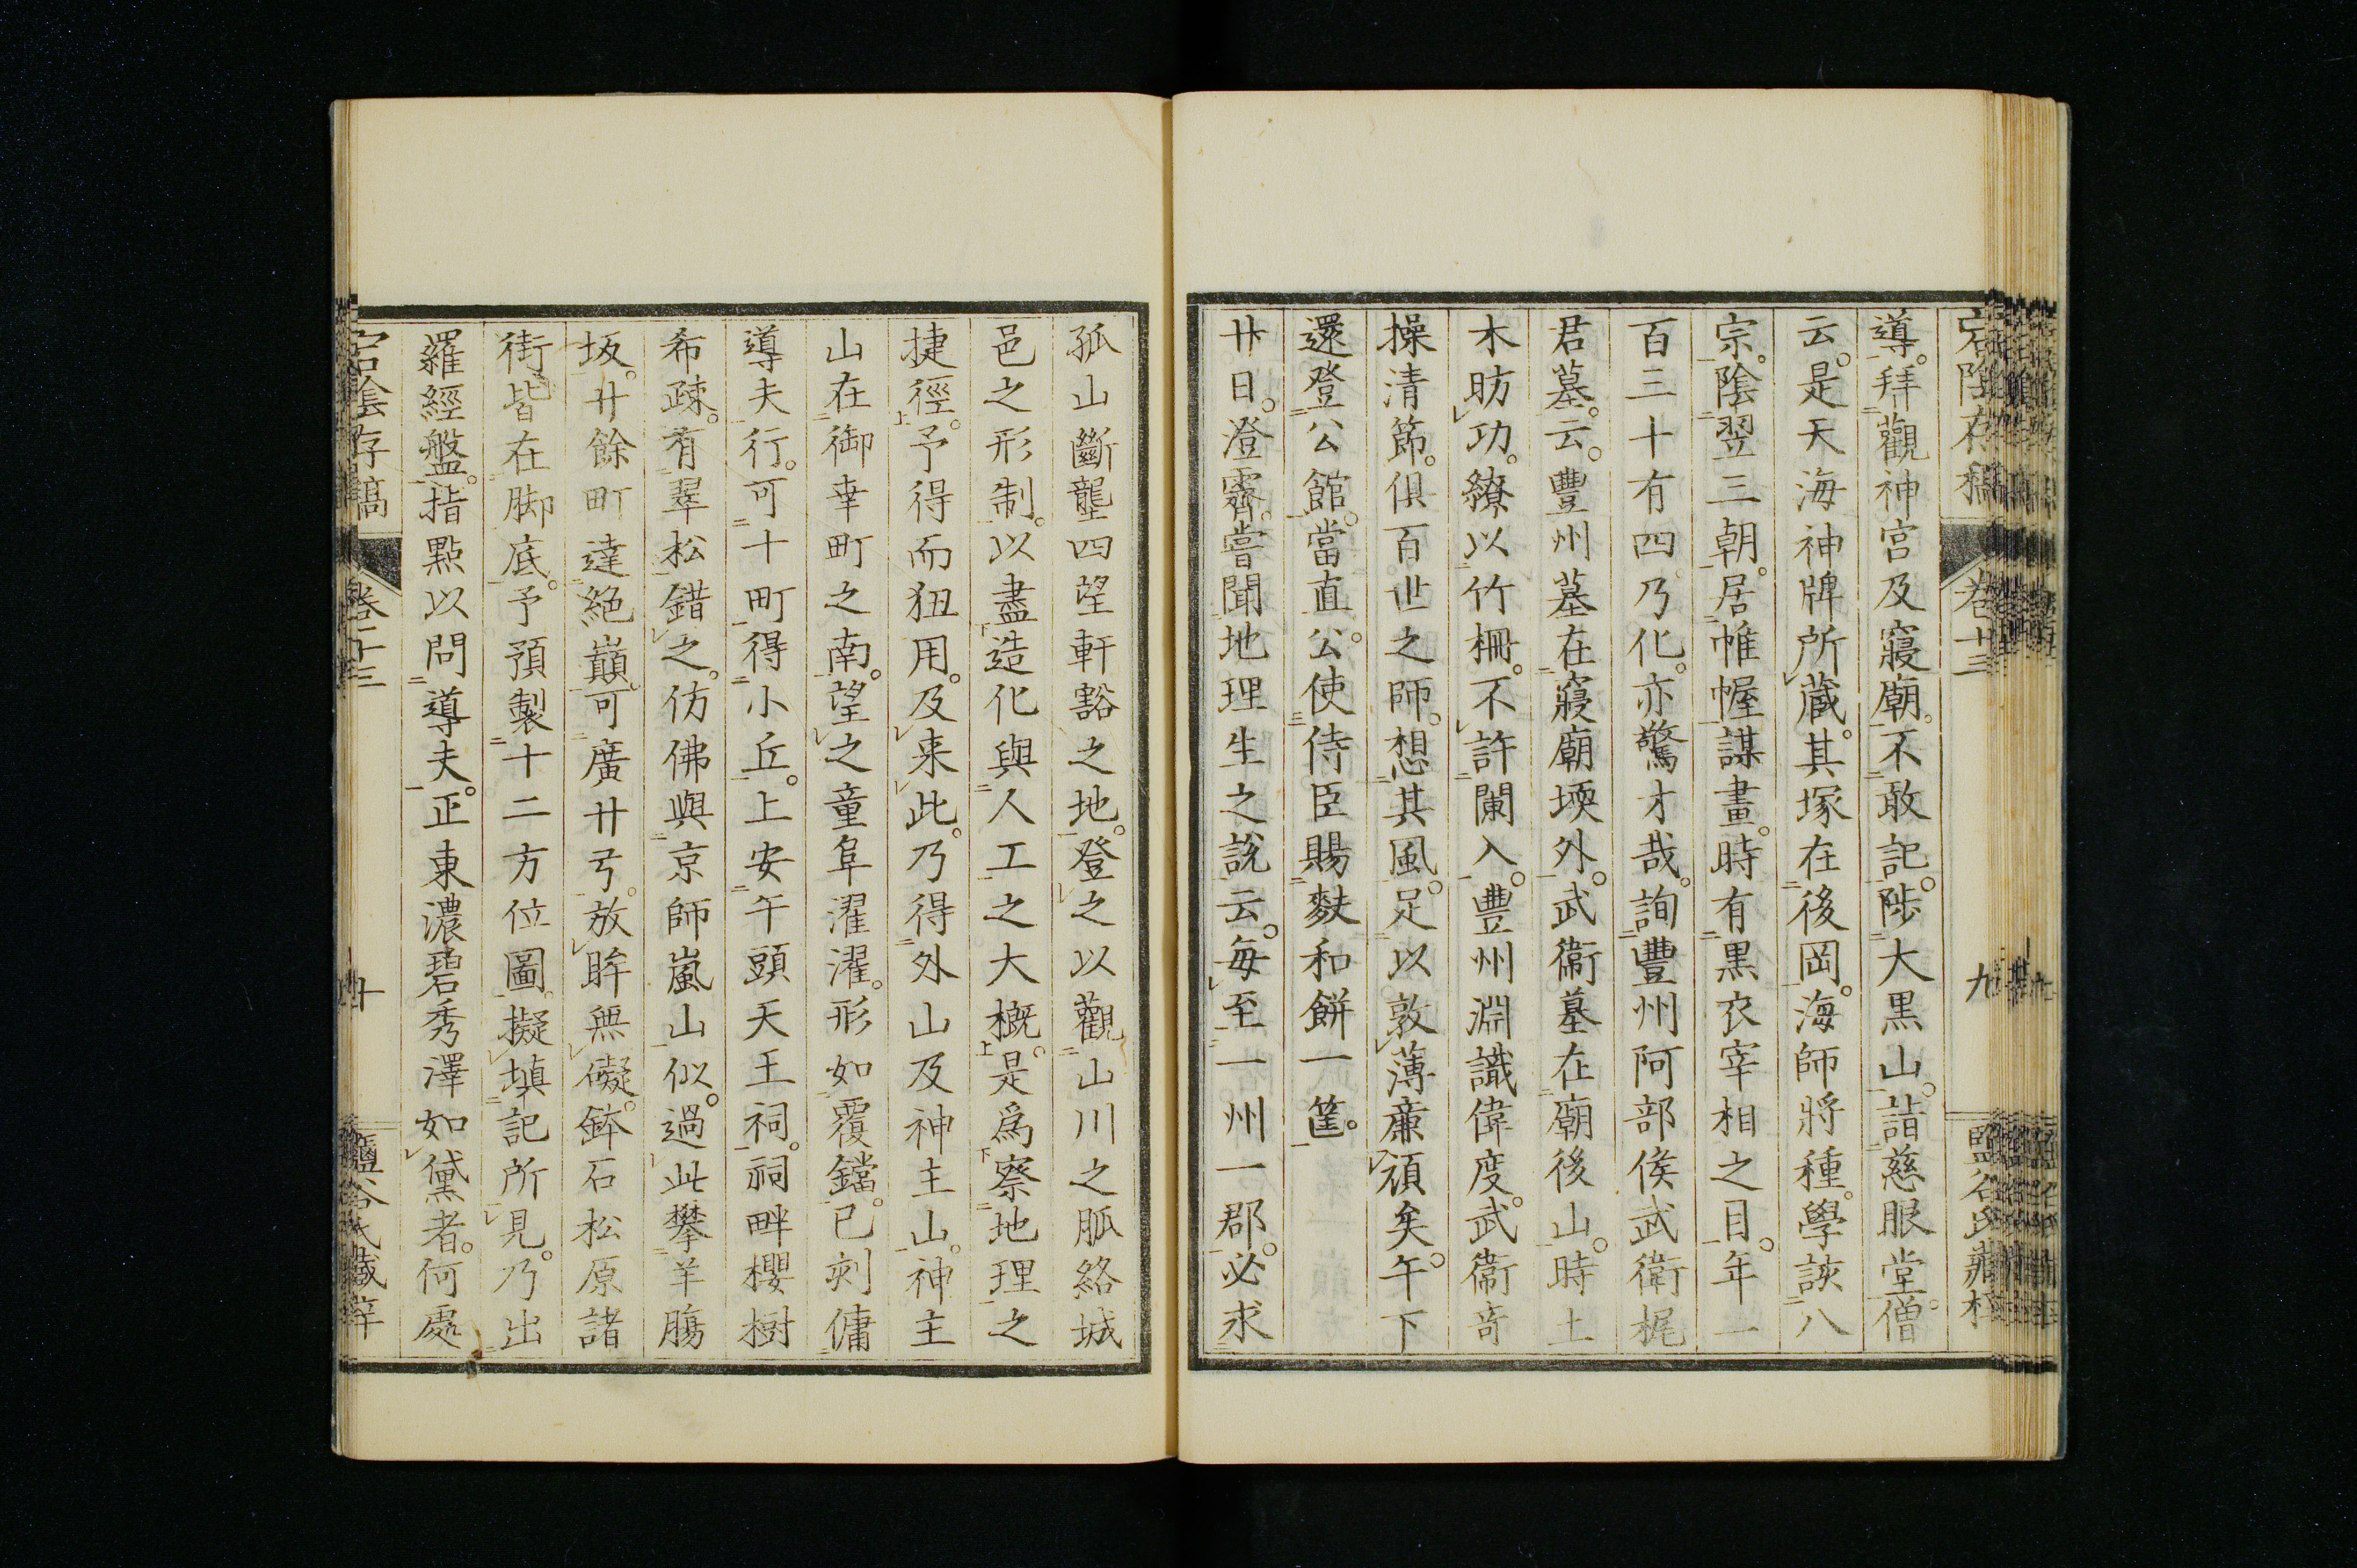 宕陰存稿 卷十三 九 鹽谷氏藏梓
導。拜觀神宮及寢廟。不敢記。陟大黒山。詣慈眼堂。僧
云。是天海神牌所蔵。其塚在後岡。海師將種。學該八
宗。陰翌三朝。居帷幄謀畫。時有黒衣宰相之目。年一
百三十有四乃化。亦驚才哉。詢豐州阿部侯武衛梶
君墓。云。豐州墓在寢廟堧外。武衞墓在廟後山。時土
木昉功。繚以竹柵。不許闌入。豐州淵識偉度。武衞奇
操清節。俱百世之師。想其風。足以敦薄廉頑矣。午下
還登公館。當直公。公使侍臣賜麨和餅一筐。
廾日。澄霽。嘗聞地理生之說云。毎至一州一郡。必求
孤山斷壟四望軒豁之地。登之以觀山川之脈絡城
邑之形制。以盡造化與人工之大概。是爲察地理之
捷徑。予得而狃用。及来此。乃得外山及神主山。神主
山在御幸町之南。望之童阜濯濯。形如覆鐺。已刻傭
導夫行。可十町得小丘。上安午頭天王祠。祠畔櫻樹
希疎。有翠松錯之。仿佛與京師嵐山似。過此攀羊腸
坂。廾餘町達絕巓。可廣廾弓。放眸無礙。鉢石松原諸
街皆在脚底。予預製十二方位圖。擬填記所見。乃出
羅經盤。指點以問導夫。正東濃碧秀澤如黛者。何處
宕陰存稿 卷十三 十 鹽谷氏藏梓